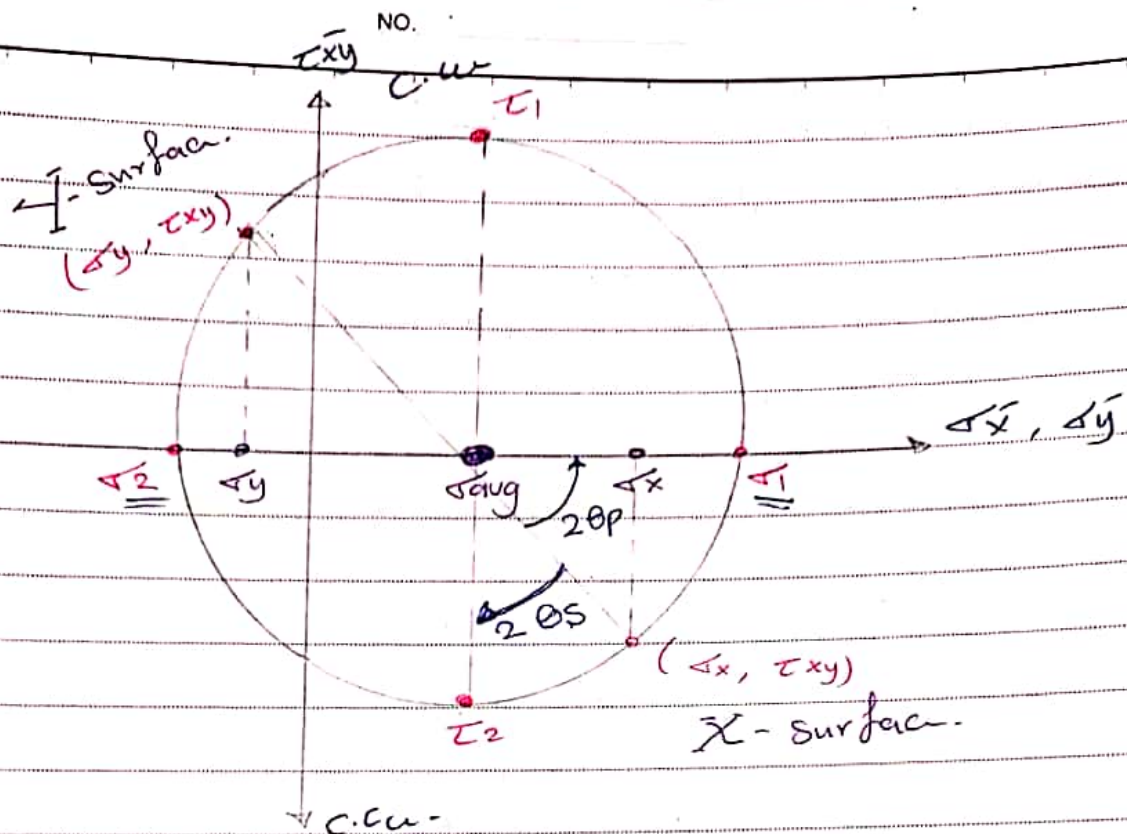 NO.
τx̄y
C.W
τ1
Y-Surfac.
(σy, τxy)
σx̄, σȳ
σ2
σy
σavg
σx
σ1
2θp
2θs
(σx, τxy)
τ2
X-surfac.
C.Cw-